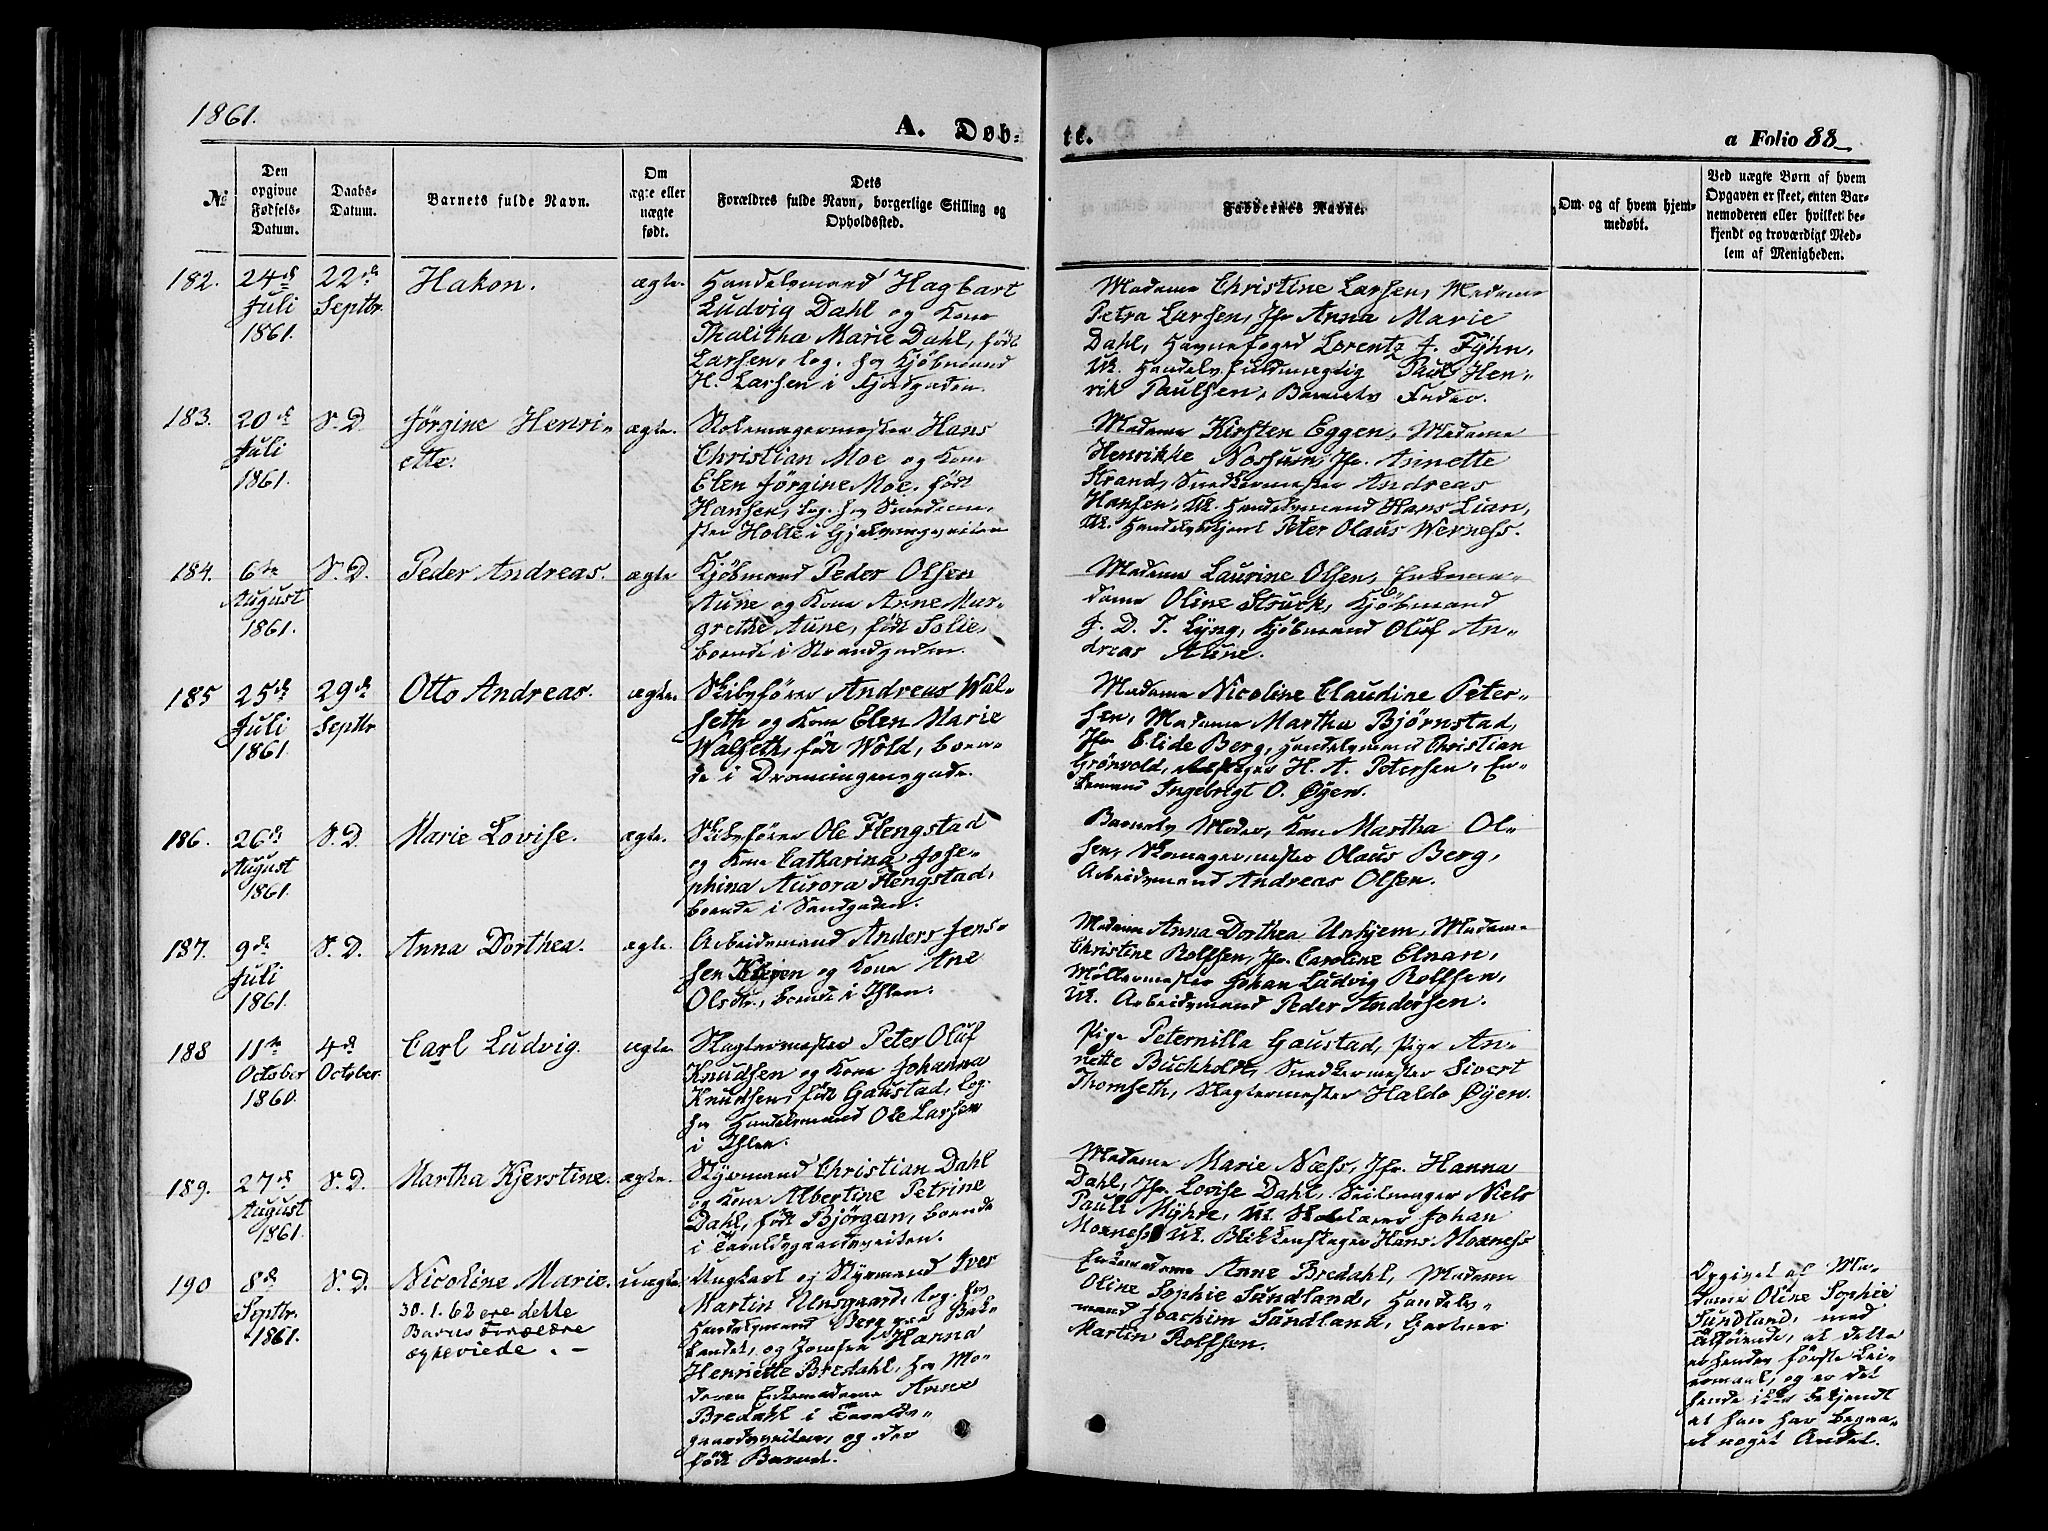 1861.
A. Døb-
te.
a Folio 88
No
Den
opgivne
Fødsels-
Datum.
Daabs-
Datum.
Barnets fulde Navn.
Om
ægte eller
uægte
født.
Dets
Forældres fulde Navn, borgerlige Stilling og
Opholdssted.
Faddernes Navne.
Om og af hvem hjem-
medøbt.
Ved uægte Børn af hvem
Opgaven er skeet, enten Bar-
nemoderen eller hvilket be-
kjendt og troværdigt Med-
lem af Menigheden.
182.
24de
Juli
1861.
22de
Septbr.
Hakon.
ægte.
Handelsmand Hagbart
Ludvig Dahl og Kone
Thalitha Marie Dahl, født
Larsen, log. hos Kjøbmand
H. Larsen i Fjordgaden.
Madame Christine Larsen, Madame
Petra Larsen, Jfr Anna Marie
Dahl, Havnefoged Lorentz J. Fyhn,
UK. Handelsfuldmægtig Paul Hen-
rik Paulsen, Barnets Fader.
183.
20de
Juli
1861.
S. D.
Jørgine Henri-
ette.
ægte.
Stolemagermester Hans
Christian Moe og Kone
Elen Jørgine Moe, født
Hansen, log. hos
Holte i
Madame Kirsten Eggen, Madame
Henrikke Noshum, Jfr. Annette
Strand, Snedkermester Andreas
Hansen, UK. Handelsmand Hans Lian,
UK. Handelsbetjent Peter Olaus Werness.
184.
6te
August
1861.
S. D.
Peder Andreas.
ægte
Kjøbmand Peder Olsen
Aune og Kone Anne Mar-
grethe Aune, født Solie,
boende i Strandgaden.
Madame Laurine Olsen, Enkema-
dame Oline Struck, Kjøbmand
J. D. T. Lyng, Kjøbmand Oluf An-
dreas Aune.
185
25de
Juli
1861.
29de
Septbr
Otto Andreas.
ægte.
Skibsfører Andreas Wal-
seth og Kone Elen Marie
Walseth, født Wold, boen-
de i Dronningensgade.
Madame Nicoline Claudine Peter-
sen, Madame Martha Bjørnstad,
Jfr Elide Berg, Handelsmand Christian
Grønvold, H. A. Petersen, En-
kemand Ingebrigt O. Øyen.
186.
26de
August
1861.
S. D.
Marie Lovise.
ægte.
Skibsfører Ole Flengstad
og Kone Catharina Jose-
phina Aurora Flengstad,
boende i Sandgaden.
Barnets Moder, Kone Martha Ol-
sen, Skomagermester Olaus Berg,
Arbeidsmand Andreas Olsen.
187.
9de
Juli
1861.
S. D.
Anna Dorthea.
ægte.
Arbeidsmand Anders Jens-
sen og Kone Ane
Olsdtr., boende i Ihlen.
Madame Anna Dorthea Unhjem, Madame
Christine Rolfsen, Jfr. Caroline Elnan,
Møllermester Johan Ludvig Rolfsen,
UK. Arbeidsmand Peder Andersen.
188
11te
October
1860.
4de
October.
Carl Ludvig.
ægte.
Slagtermester Peter Oluf
Knudsen og Kone Johanna
Knudsen, født Gaustad, log.
hos Handelsmand Ole Larsen
i Ihlen.
Pige Peternilla Gaustad, Pige An-
nette Buchholt, Snedkermester Sivert
Thomseth, Slagtermester Haldo Øyen.
189.
27de
August
1861.
S. D.
Martha Kjerstine.
ægte.
Styrmand Christian Dahl
og Kone Albertine Petrine
Dahl, født Bjørgan, boende
i Taraldsgaardsveiten.
Madame Marie Næss, Jfr. Hanna
Dahl, Jfr. Lovise Dahl, Seilmager Niels
Pauli Myhre, UK. Johan
Moxness UK. Blikkenslager Hans Moxness
190
8de
Septbr.
1861.
S. D.
Nicoline Marie.
30.1.62 ere dette
Barns Forældre
ægteviede. -
uægte.
Ungkarl og Styrmand Iver
Martin Unsgaard, log. hos
Handelsmand Berg paa Bak-
landet, og Jomfru Hanna
Henriette Bredahl, hos Mo-
deren Enkemadame Anne
Bredahl i Taralds-
gaardsveiten, og der
født Barnet.
Enkemadame Anne Bredahl, Madame
Oline Sophie Sundland, Handels-
mand Joachim Sundland, Gartner
Martin Rolfsen.
Opgivet af Ma-
dame Oline Sophie
Sundland, med
Tilføiende, at dette
er hendes første Lei-
ermaal, og er det
hende ikke bekjendt
at han har begaa-
et noget Andet.